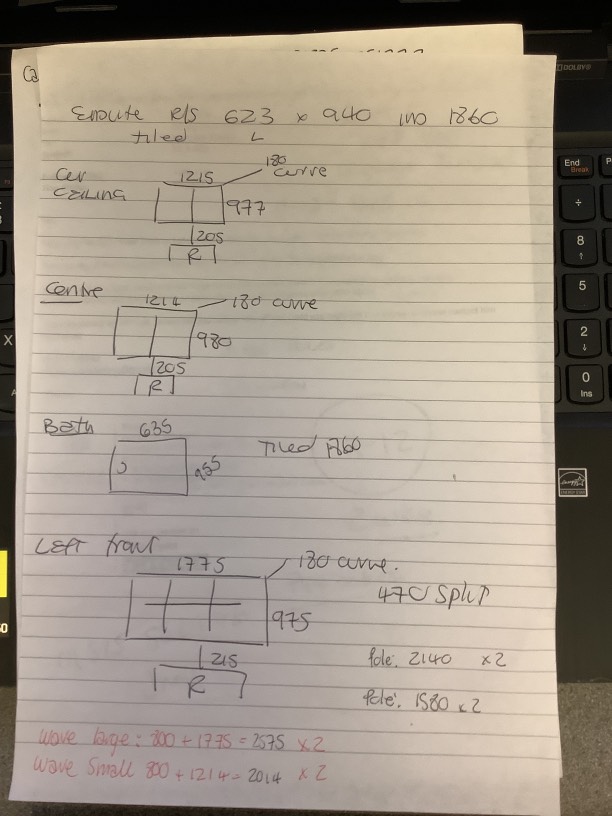 Ensuite R/S 623 x 940 IND 1860
tiled L
CEILING
1215 180 curve
977
205
R
Centre
1214 180 curve
980
205
R
Bath 635
Tiled 1860
955
Left front
1775 180 curve.
470 Split
975
215
R
Pole: 2140 x2
Pole: 1580 x2
Wave large: 800 + 1775 = 2575 x2
Wave Small 800 + 1214 = 2014 x 2
End
Break
÷
8
5
2
0
Ins
X
DOLBY